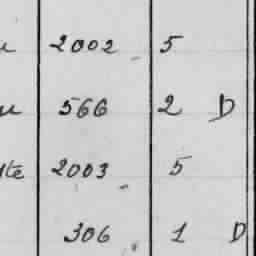 2002 5
566 2 D
2003 5
306 1 D